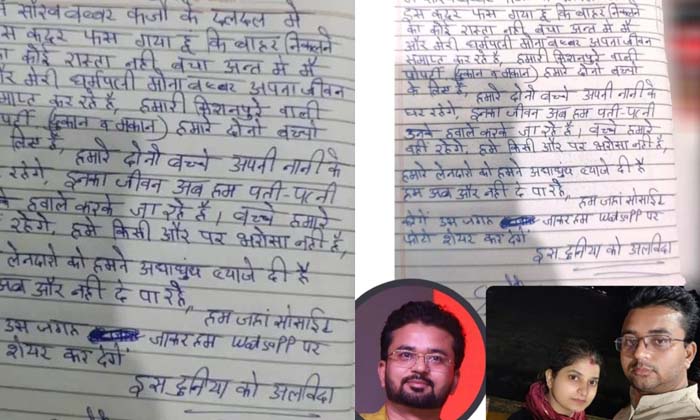 सौरव बब्बर कर्जो के दलदल मे
स कदर फस गया हूं कि बाहर निकलने
का कोई रास्ता नही बचा अन्त मे मै
और मेरी धर्मपत्नी मोना बब्बर अपना जीवन
समाप्त कर रहे है, हमारी किशनपुरे वाली
(दुकान व मकान) हमारे दोनो बच्चो
लिए है, हमारे दोनो बच्चे अपनी नानी के
रहेगे, इनका जीवन अब हम पती-पत्नी
हवाले करके जा रहे है। बच्चे हमारे
रहेगे, हमे किसी और पर भरोसा नही है,
लेनदारो को हमने अंधाधुंध ब्याजे दी है
अब और नही दे पा रहे,
हम जहां सोसाईट
उस जगह जाकर हम WhatsAPP पर
शेयर कर देगें
इस दुनिया को अलविदा
इस कदर फस गया हूं कि बाहर निकलने
का कोई रास्ता नही बचा अन्त मे मै
और मेरी धर्मपत्नी मोना बब्बर अपना जीवन
समाप्त कर रहे है, हमारी किशनपुरे वाली
प्रोपर्टी (दुकान व मकान) हमारे दोनो बच्चो
के लिए है, हमारे दोनो बच्चे अपनी नानी के
घर रहेगे, इनका जीवन अब हम पती-पत्नी
उनके हवाले करके जा रहे है। बच्चे हमारे
वही रहेगे, हमे किसी और पर भरोसा नही है,
हमारे लेनदारो को हमने अंधाधुंध ब्याजे दी है
हम अब और नही दे पा रहे,
हम जहां सोसाईट
करेगें उस जगह जाकर हम WhatsAPP पर
फोटो शेयर कर देगें
इस दुनिया को अलविदा